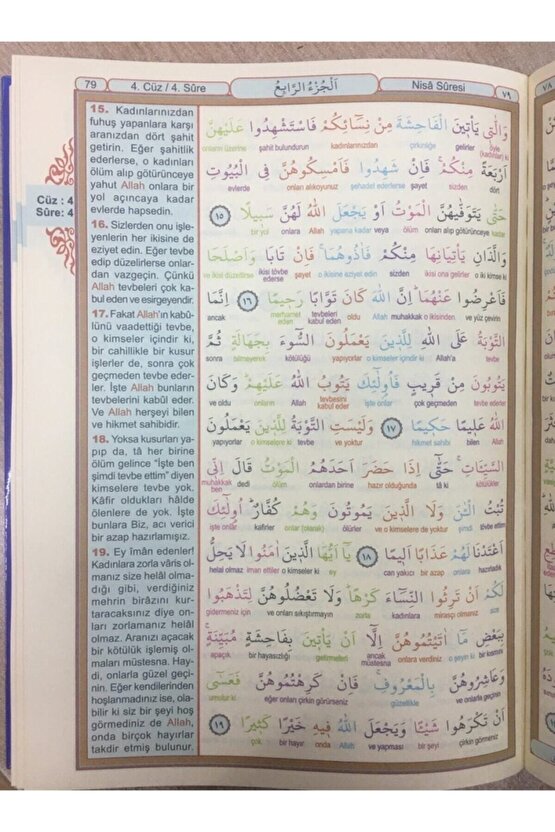 79 4. Cüz / 4. Sûre اَلْجُزْءُ الرَّابِعُ Nisâ Sûresi ٧٩
Cüz : 4
Sûre: 4
15. Kadınlarınızdan
fuhuş yapanlara karşı
aranızdan dört şahit
getirin. Eğer şahitlik
ederlerse, o kadınları
ölüm alıp götürünceye
yahut Allah onlara bir
yol açıncaya kadar
evlerde hapsedin.
16. Sizlerden onu işle-
yenlerin her ikisine de
eziyet edin. Eğer tevbe
edip düzelirlerse onlar-
dan vazgeçin. Çünkü
Allah tevbeleri çok ka-
bul eden ve esirgeyendir.
17. Fakat Allah'ın kabû-
lünü vaadettiği tevbe,
o kimseler içindir ki,
bir cahillikle bir kusur
işlerler de, sonra çok
geçmeden tevbe eder-
ler. İşte Allah bunların
tevbelerini kabul eder.
Ve Allah herşeyi bilen
ve hikmet sahibidir.
18. Yoksa kusurları ya-
pıp da, tâ her birine
ölüm gelince "İşte ben
şimdi tevbe ettim" diyen
kimselere tevbe yok.
Kâfir oldukları hâlde
ölenlere de yok. İşte
bunlara Biz, acı verici
bir azap hazırlamışız.
19. Ey îman edenler!
Kadınlara zorla vâris ol-
manız size helâl olma-
dığı gibi, verdiğiniz
mehrin birâzını kur-
taracaksınız diye on-
ları zorlamanız helâl
olmaz. Aranızı açacak
bir kötülük işlemiş ol-
maları müstesna. Hay-
di, onlarla güzel geçi-
nin. Eğer kendilerinden
hoşlanmadınız ise, ola-
bilir ki siz bir şeyi hoş
görmediniz de Allah,
onda birçok hayırlar
takdir etmiş bulunur.
وَالّٰت۪ي يَأْت۪ينَ الْفَاحِشَةَ مِنْ نِسَٓائِكُمْ فَاسْتَشْهِدُوا عَلَيْهِنَّ
onların üzerine şahit bulundurun kadınlarınızdan çirkinliğe gelirler öyle (kadınlar) ki
اَرْبَعَةً مِنْكُمْۚ فَاِنْ شَهِدُوا فَاَمْسِكُوهُنَّ فِي الْبُيُوتِ
evlerde onları alıkoyunuz şehadet ederlerse şayet sizden dört
حَتّٰى يَتَوَفّٰيهُنَّ الْمَوْتُ اَوْ يَجْعَلَ اللّٰهُ لَهُنَّ سَب۪يلًا ١٥
bir yol onlara Allah yapana kadar veya ölüm onları alıp götürünceye kadar
وَالَّذَانِ يَأْتِيَانِهَا مِنْكُمْ فَاٰذُوهُمَاۚ فَاِنْ تَابَا وَاَصْلَحَا
ve ikisi düzelirse ikisi tövbe ederse şayet o ikisine eziyet edin sizden ikisi ona gelirler o iki kimse ki
فَاَعْرِضُوا عَنْهُمَاۜ اِنَّ اللّٰهَ كَانَ تَوَّابًا رَح۪يمًا ١٦ اِنَّمَا
ancak merhamet eden tevbeleri kabul eden oldu Allah muhakkak o ikisinden ve yüz çevirin
التَّوْبَةُ عَلَى اللّٰهِ لِلَّذ۪ينَ يَعْمَلُونَ السُّٓوءَ بِجَهَالَةٍ ثُمَّ
sonra bilmeyerek kötülüğü yapıyorlar o kimseler içindir ki Allah'a tevbe
يَتُوبُونَ مِنْ قَر۪يبٍ فَاُو۬لٰٓئِكَ يَتُوبُ اللّٰهُ عَلَيْهِمْۜ وَكَانَ
ve oldu onların Allah tevbesini kabul eder işte onlar çok geçmeden tevbe ederler
اللّٰهُ عَل۪يمًا حَك۪يمًا ١٧ وَلَيْسَتِ التَّوْبَةُ لِلَّذ۪ينَ يَعْمَلُونَ
yapıyorlar o kimselere ki tevbe ve yoktur hikmet sahibi bilen Allah
السَّيِّـَٔاتِۚ حَتّٰٓى اِذَا حَضَرَ اَحَدَهُمُ الْمَوْتُ قَالَ اِنّ۪ي
muhakkak ben dedi ölüm onlardan birine hazır olduğunda tâ ki kötülükler
تُبْتُ الْـٰٔنَ وَلَا الَّذ۪ينَ يَمُوتُونَ وَهُمْ كُفَّارٌۜ اُو۬لٰٓئِكَ
işte onlar kafirler onlar (olarak) ölürler ve o kimselere de yoktur şimdi tövbe ettim
اَعْتَدْنَا لَهُمْ عَذَابًا اَل۪يمًا ١٨ يَٓا اَيُّهَا الَّذ۪ينَ اٰمَنُوا لَا يَحِلُّ
helal olmaz iman ettiler o kimseler ki ey can yakıcı bir azap onlara hazırladık
لَكُمْ اَنْ تَرِثُوا النِّسَٓاءَ كَرْهًاۜ وَلَا تَعْضُلُوهُنَّ لِتَذْهَبُوا
gidermeniz için ve onları sıkıştırmayın zorla kadınlara mirasçı olmanız size
بِبَعْضِ مَٓا اٰتَيْتُمُوهُنَّ اِلَّٓا اَنْ يَأْت۪ينَ بِفَاحِشَةٍ مُبَيِّنَةٍۚ
apaçık bir hayasızlığı getirmeleri ancak müstesna onlara verdiniz o şeyin ki bir kısmını
وَعَاشِرُوهُنَّ بِالْمَعْرُوفِۚ فَاِنْ كَرِهْتُمُوهُنَّ فَعَسٰٓى
umulur ki eğer onları çirkin görürseniz güzellikle ve onlarla geçinin
اَنْ تَكْرَهُوا شَيْـًٔا وَيَجْعَلَ اللّٰهُ ف۪يهِ خَيْرًا كَث۪يرًا ١٩
çok bir hayır onda Allah ve yapması bir şeyi çirkin görmeniz
٧٨